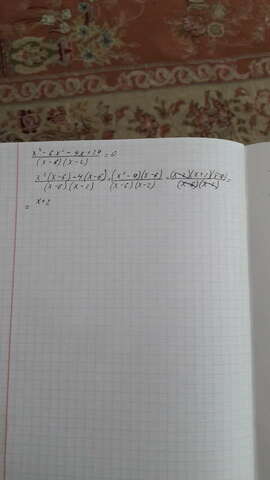 x³ - 6x² - 4x + 24 / (x-6)(x-2) = 0
x²(x-6) - 4(x-6) / (x-6)(x-2) = (x²-4)(x-6) / (x-6)(x-2) = (x-2)(x+2)(x-6) / (x-6)(x-2) =
= x+2